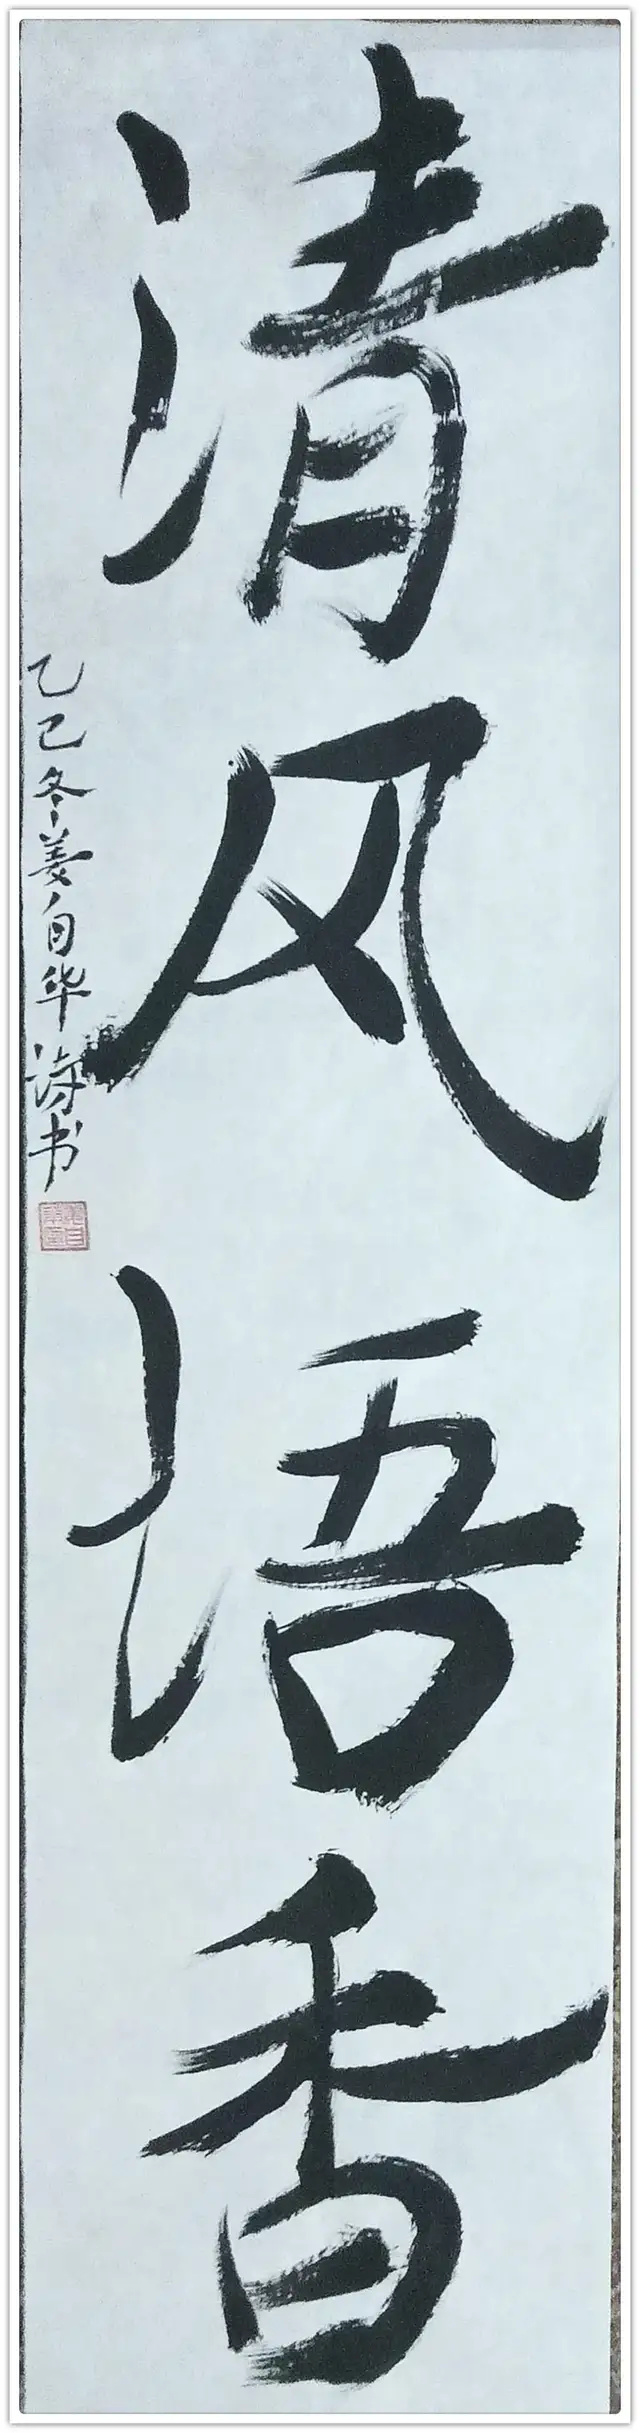 清风语香
乙巳冬姜自华诗书